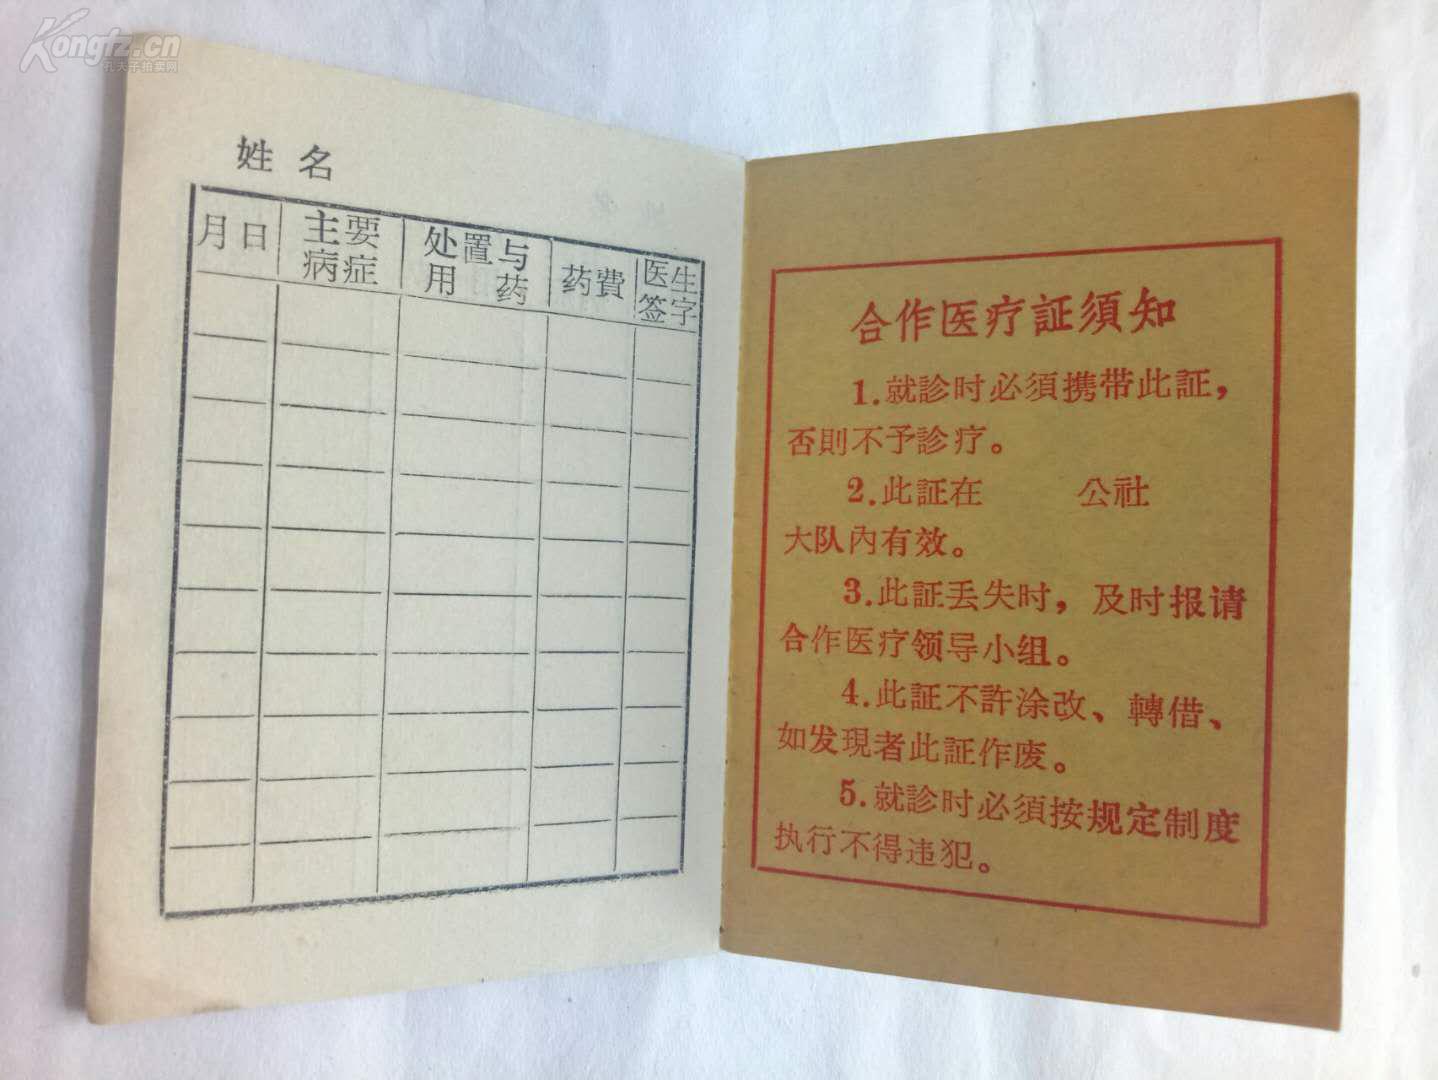 Kongfz.cn
孔夫子拍卖网
姓 名
月日 主要病症 处置与用药 药費 医生签字
合作医疗証須知
1.就診时必須携带此証，
否則不予診疗。
2.此証在 公社
大队內有效。
3.此証丢失时，及时报请
合作医疗领导小组。
4.此証不許涂改、轉借、
如发現者此証作废。
5.就診时必須按规定制度
执行不得违犯。